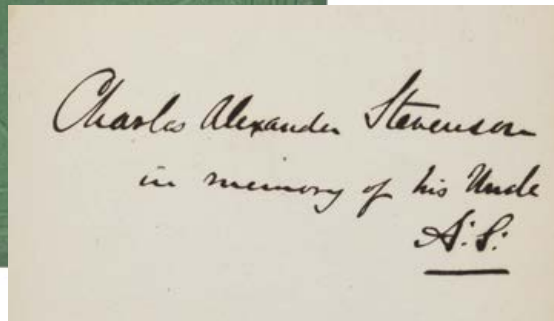 Charles Alexander Stevenson
in memory of his Uncle
A. S.